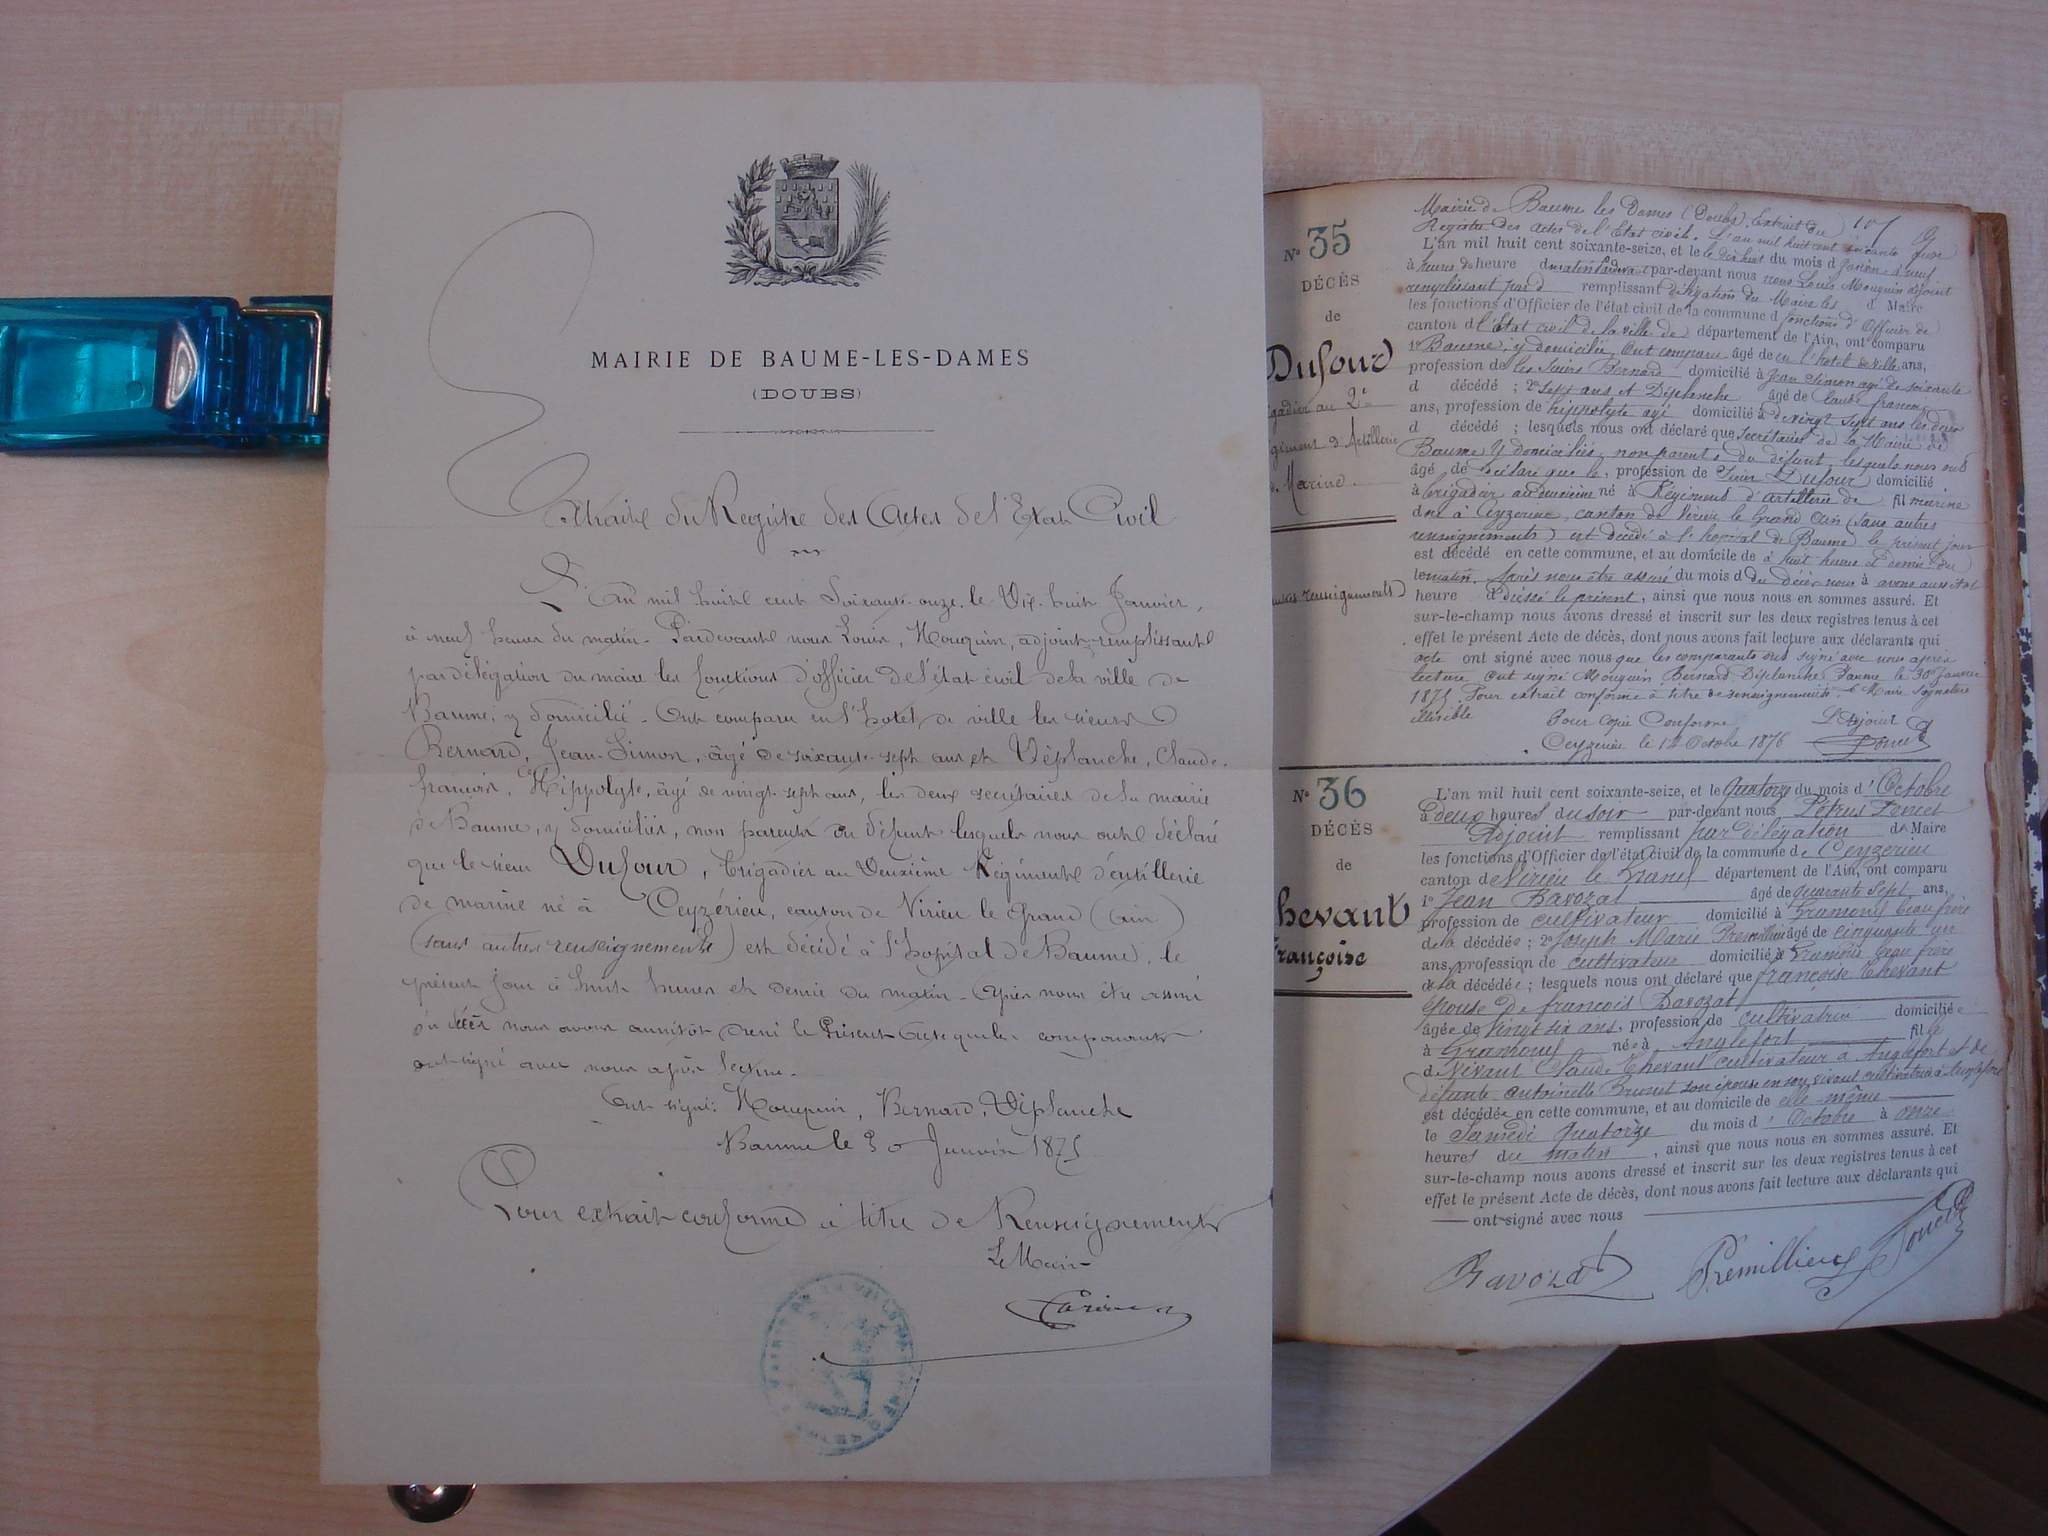 MAIRIE DE BAUME-LES-DAMES
(DOUBS)
Extrait du Registre des Actes de l'Etat Civil
L'an mil huit cent soixante-onze, le Dix-huit Janvier,
à neuf heures du matin. Pardevant nous Louis, Mouquin, adjoint remplissant
par délégation du maire les fonctions d'officier de l'état civil de la ville de
Baume, y domicilié. Ont comparu en l'hotel de ville les sieurs
Bernard, Jean-Simon, âgé de soixante-sept ans et Déplanche, Claude-
françois, Hippolyte, âgé de vingt-sept ans, les deux secrétaires de la mairie
de Baume, y domiciliés, non parents du défunt lesquels nous ont déclaré
que le sieur Dufour, brigadier au Deuxième Régiment d'artillerie
de marine né à Ceyzérieu, canton de Virieu le Grand (ain)
(sans autres renseignements) est décédé à l'hopital de Baume, le
présent jour à huit heures et demie du matin. Après nous être assuré
du décès nous avons aussitôt dressé le Présent Acte que les comparants
ont signé avec nous après lecture.
Ont signé: Mouquin, Bernard, Déplanche
Baume le 30 Janvier 1875
Pour extrait conforme à titre de Renseignements
Le Maire
No 35
DÉCÈS
de
Dufour
2e
d'Artillerie
Marine
renseignements)
Mairie de Baume les Dames (Doubs). Extrait du 107
Registre des actes de l'Etat civil. L'an mil huit cent soixante
L'an mil huit cent soixante-seize, et le dix huit du mois d Janvier à neuf
à heures du heure d matin Pardevant par-devant nous nous Louis Mouquin adjoint
remplissant par d remplissant délégation du Maire les d Maire
les fonctions d'Officier de l'état civil de la commune d fonctions d'Officier de
canton d l'Etat civil de la ville de département de l'Ain, ont comparu
1o Baume, y domicilié, Ont comparu âgé de en l'hotel de ville ans,
profession de les sieurs Bernard domicilié à Jean Simon agé de soixante
d décédé ; 2o Sept ans et Déplanche âgé de Claude françois
ans, profession de hippolyte agé domicilié à de vingt sept ans les deux
d décédé ; lesquels nous ont déclaré que secrétaires de la Mairie de
Baume y domiciliés, non parents du défunt, lesquels nous ont
âgé de déclaré que le, profession de Sieur Dufour domicilié
à brigadier au deuxième né à Régiment d'artillerie de fil marine
d né à Ceyzerieu, canton de Virieu le Grand Ain (sans autres
renseignements) est décédé à l'hopital de Baume, le présent jour
est décédé en cette commune, et au domicile de à huit heures et demie du
le matin. Après nous être assuré du mois d du décès nous à avons aussitôt
heure d dressé le présent, ainsi que nous nous en sommes assuré. Et
sur-le-champ nous avons dressé et inscrit sur les deux registres tenus à cet
effet le présent Acte de décès, dont nous avons fait lecture aux déclarants qui
acte ont signé avec nous que les comparants ont signé avec nous après
lecture ont signé Mouquin Bernard Déplanche Baume le 30 Janvier
1875. Pour extrait conforme à titre de renseignements. le Maire Signature
illisible Pour copie Conforme L'Adjoint
Ceyzerieu le 12 Octobre 1876 Poncet
No 36
DÉCÈS
de
hevant
Françoise
L'an mil huit cent soixante-seize, et le Quatorze du mois d'Octobre
à deux heures du soir par-devant nous Pétrus Poncet
Adjoint remplissant par délégation du Maire
les fonctions d'Officier de l'état civil de la commune de Ceyzerieu
canton de Virieu le Grand département de l'Ain, ont comparu
1o Jean Bavozat âgé de quarante sept ans,
profession de cultivateur domicilié à Gramond beau frère
de la décédée ; 2o Joseph Marie Premillieu âgé de cinquante un
ans, profession de cultivateur domicilié à Gramond beau frère
de la décédée ; lesquels nous ont déclaré que françoise Thevant
épouse de francois Bavozat
âgée de Vingt six ans, profession de cultivatrice domiciliée
à Gramond née à Anglefort fille
de Vivant Claude Thevant cultivateur à Anglefort et de
défunte antoinette Brunet son épouse en son vivant cultivatrice à Anglefort
est décédée en cette commune, et au domicile de elle-même
le Samedi Quatorze du mois d'Octobre à onze
heures du matin, ainsi que nous nous en sommes assuré. Et
sur-le-champ nous avons dressé et inscrit sur les deux registres tenus à cet
effet le présent Acte de décès, dont nous avons fait lecture aux déclarants qui
ont signé avec nous
Bavozat Premillieu Poncet